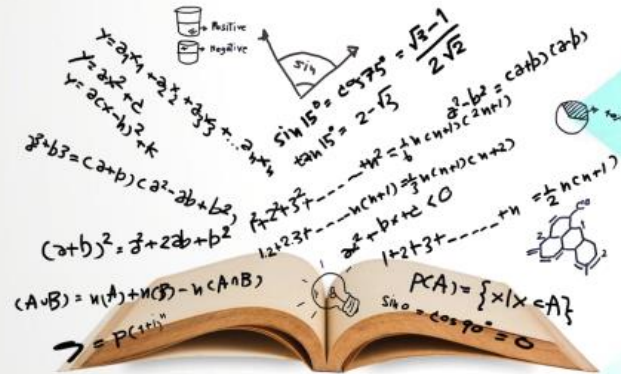 Positive
Negative
sin
y = a₁x₁ + a₂x₂ + a₃x₃ + ... aₙxₙ
y = ax² + c
y = a(x-h)² + k
sin 15° = cos 75° = √3-1 / 2√2
tan 15° = 2-√3
a²-b² = (a+b)(a-b)
a³+b³ = (a+b)(a²-ab+b²)
1²+2²+3²+ ...... +n² = 1/6 n(n+1)(2n+1)
1.2+2.3+ ...... n(n+1) = 1/3 n(n+1)(n+2)
(a+b)² = a²+2ab+b²
ax² + bx + c < 0
1+2+3+ ...... +n = 1/2 n(n+1)
(A∪B) = n(A)+n(B)-n(A∩B)
P(A) = {x|x⊂A}
sin 0 = cos 90° = 0
= P(1+i)ⁿ